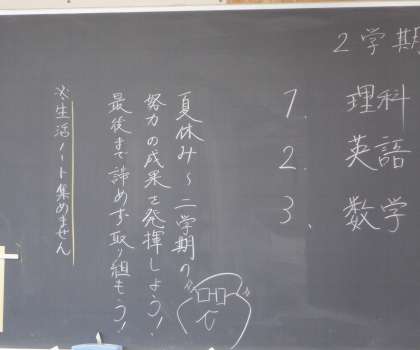 2学期
1. 理科
2. 英語
3. 数学
夏休み〜二学期の
努力の成果を発揮しよう!
最後まで諦めず取り組もう!
※生活ノート集めません